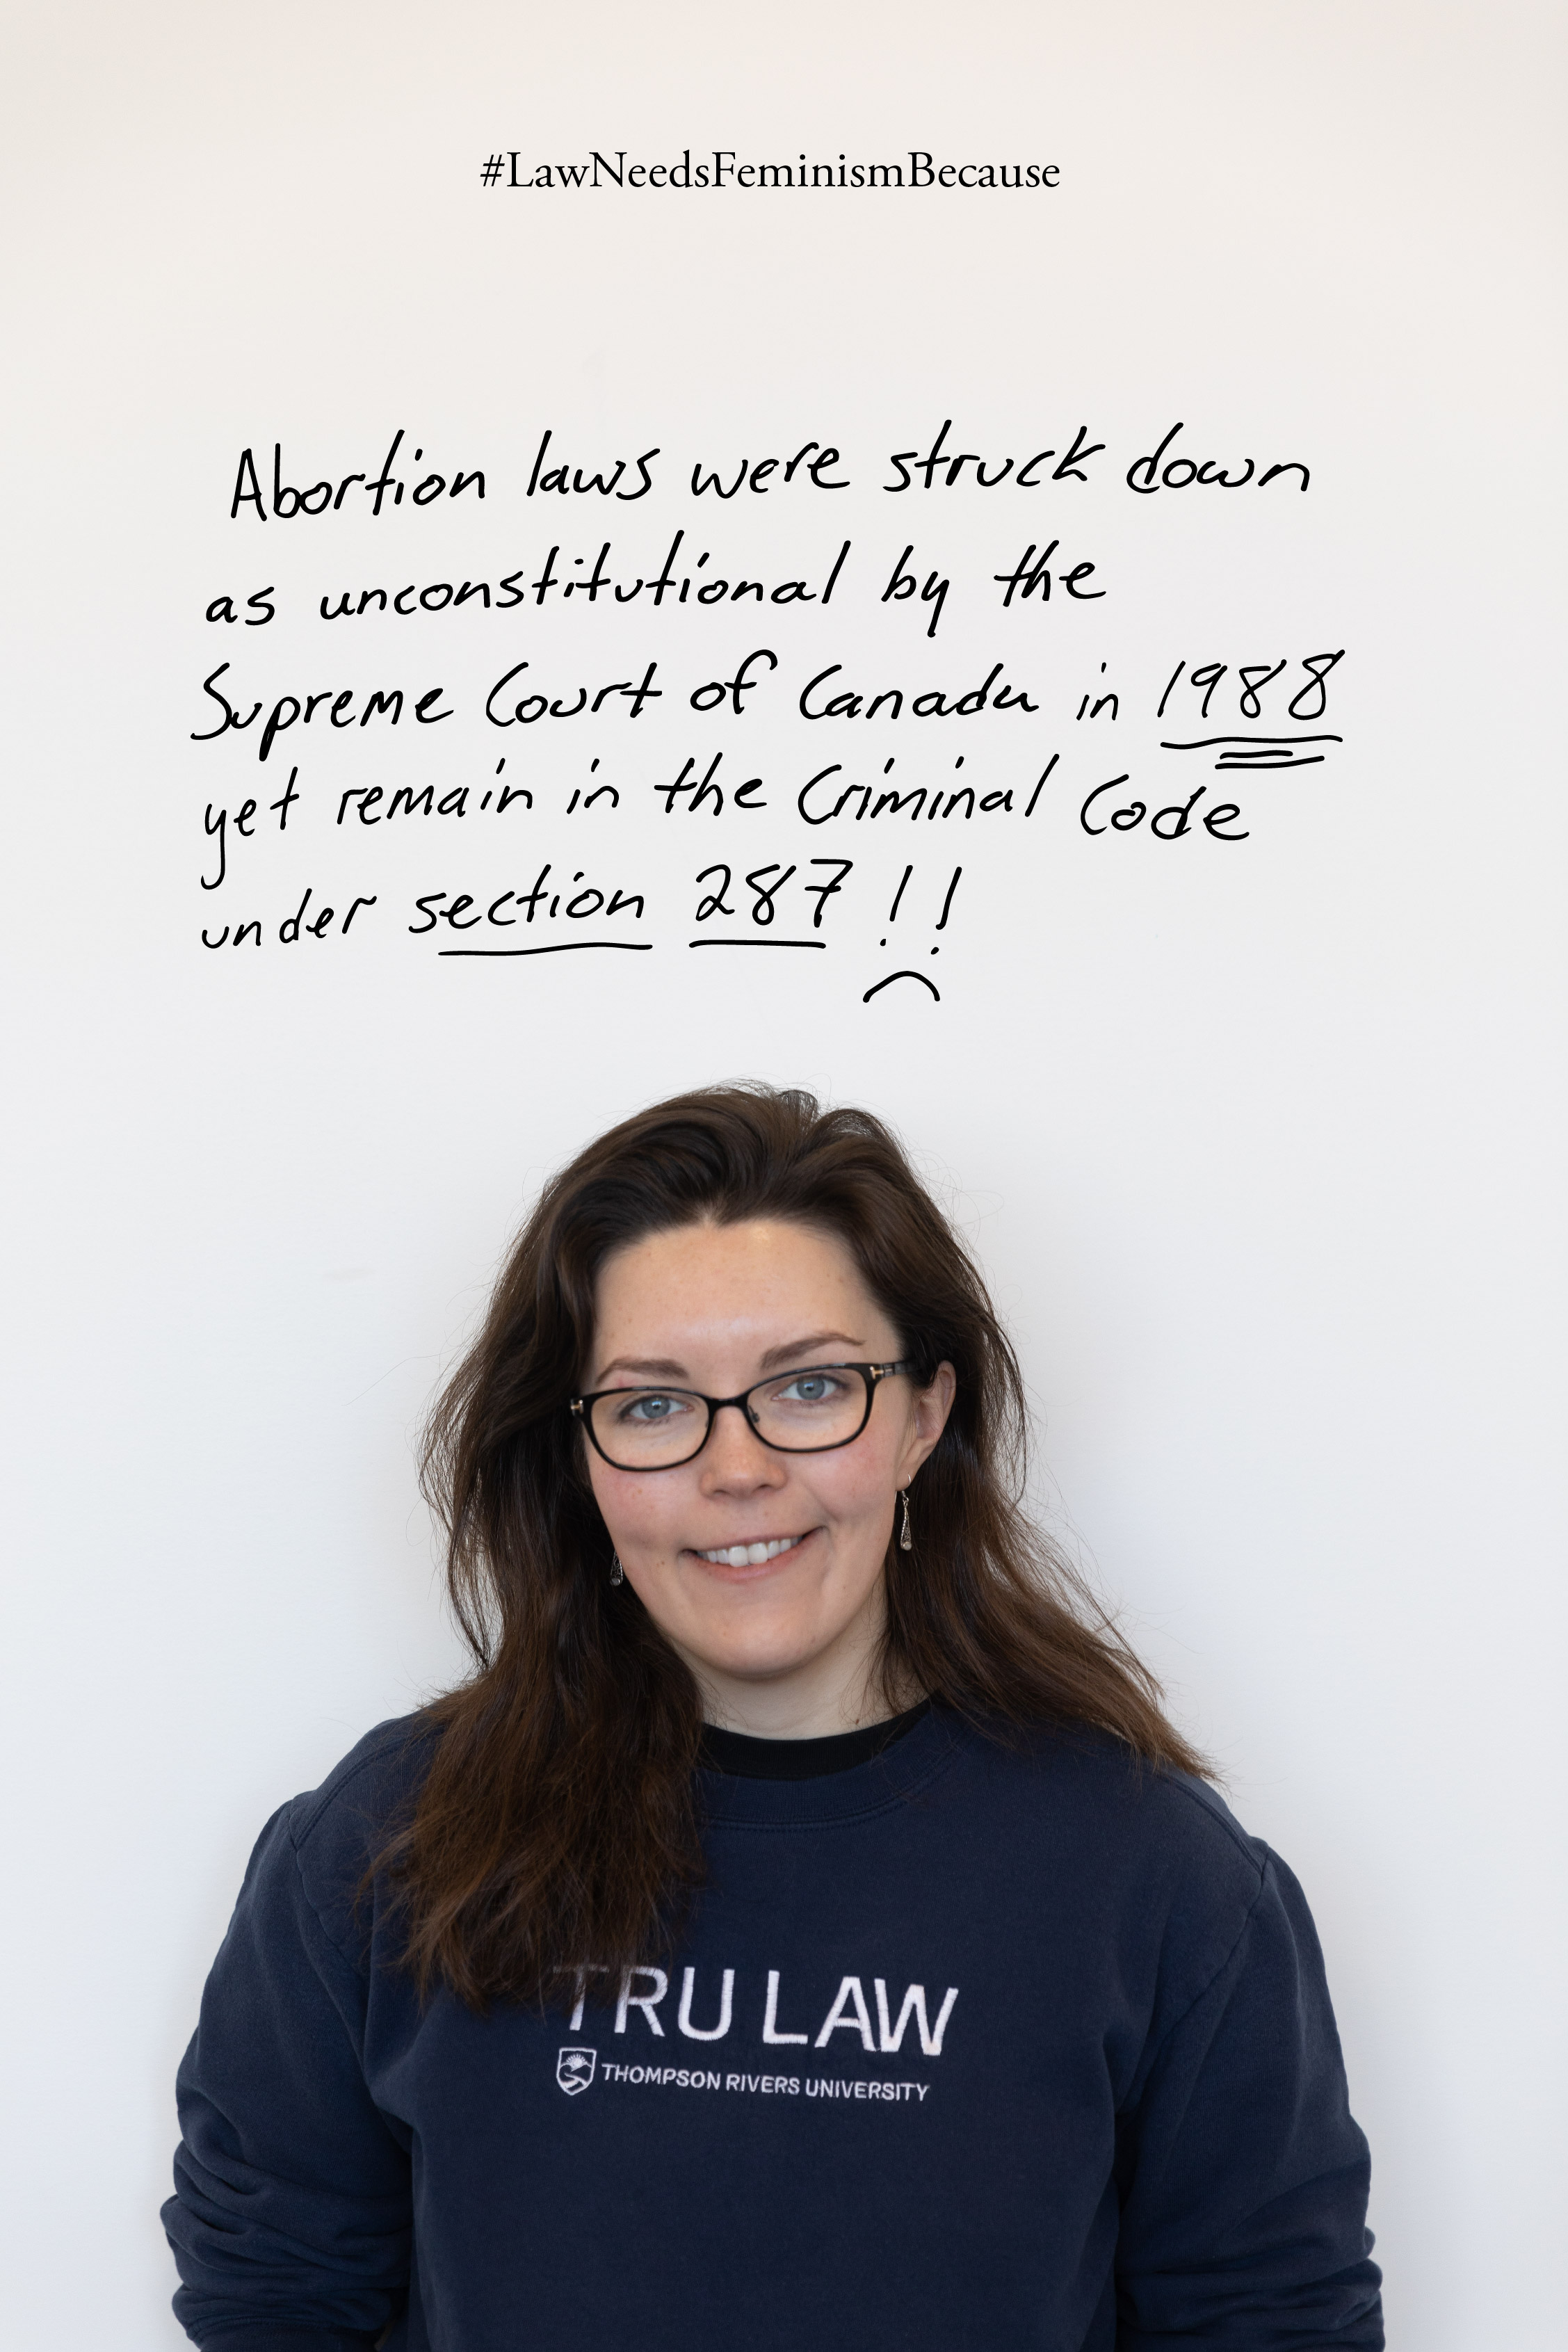 #LawNeedsFeminismBecause
Abortion laws were struck down
as unconstitutional by the
Supreme Court of Canada in 1988
yet remain in the Criminal Code
under section 287 !!
TRU LAW
THOMPSON RIVERS UNIVERSITY